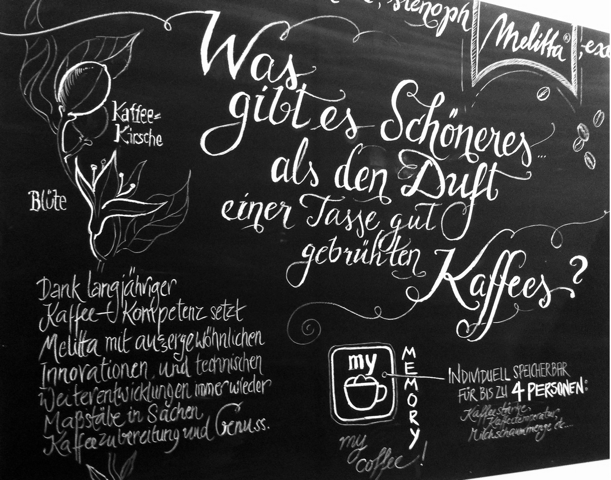 Melitta®
Was
gibt es Schöneres...
als den Duft
einer Tasse gut
gebrühten
Kaffees?
Kaffee-
Kirsche
Blüte
Dank langjähriger
Kaffee-Kompetenz setzt
Melitta mit außergewöhnlichen
Innovationen und technischen
Weiterentwicklungen immer wieder
Maßstäbe in Sachen
Kaffeezubereitung und Genuss.
my
MEMORY
my
coffee!
INDIVIDUELL SPEICHERBAR
FÜR BIS ZU 4 PERSONEN:
Kaffeestärke,
Kaffeetemperatur,
Milchschaummenge etc.